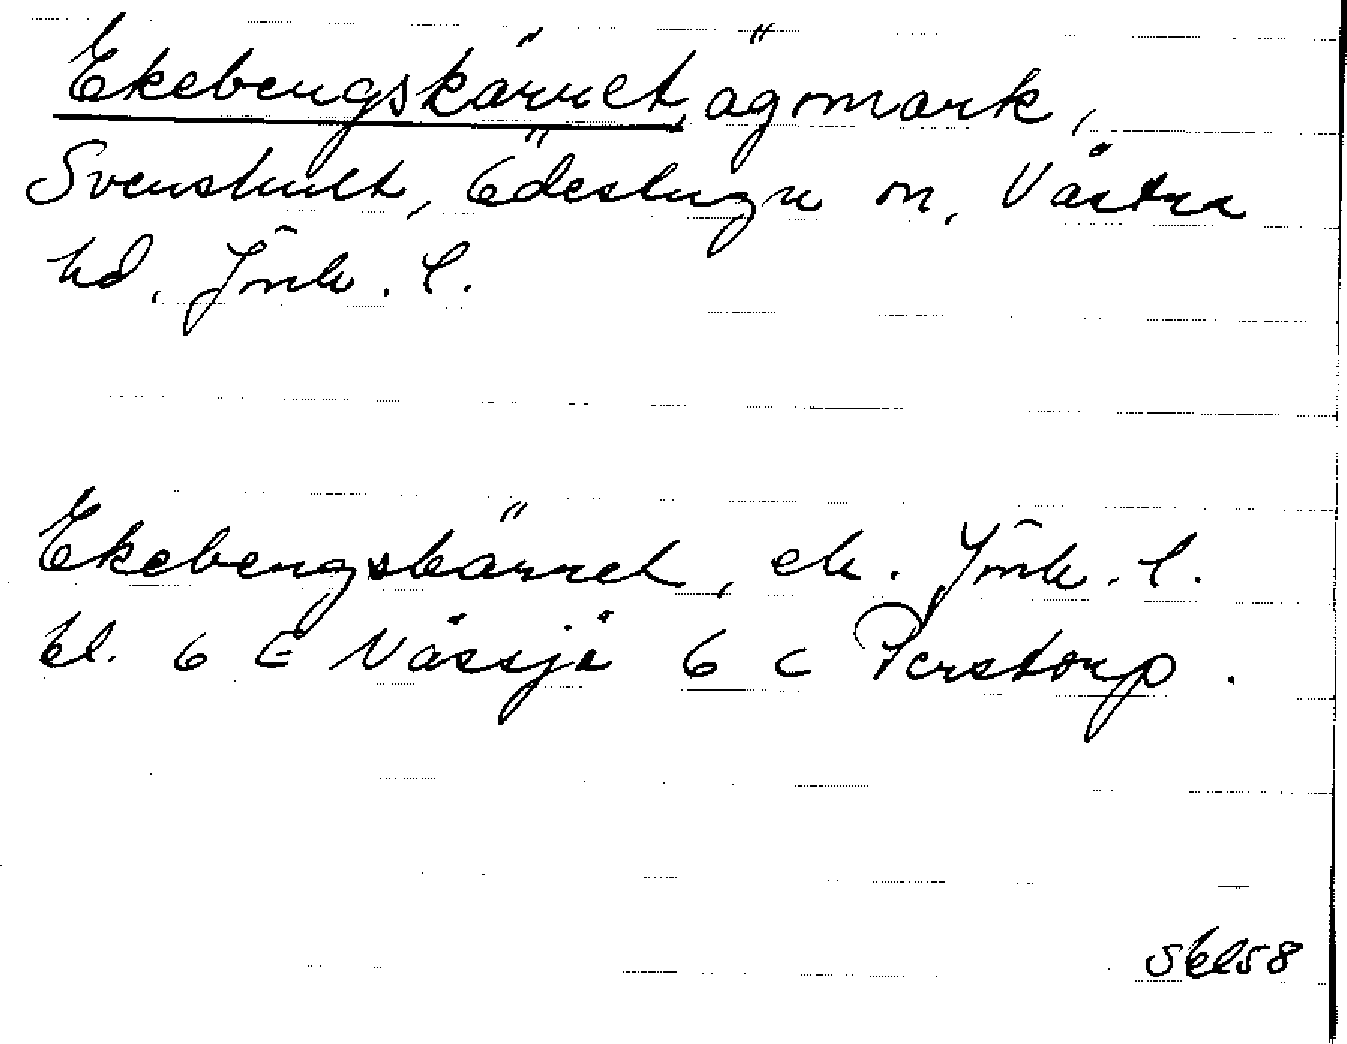 Ekebergskärret, ägomark,
Svenshult, Ödestugu sn, Västra
hd, Jönk. l.
Ekebergskärret, ek. Jönk. l.
bl. 6 E Nässjö 6 c Perstorp.